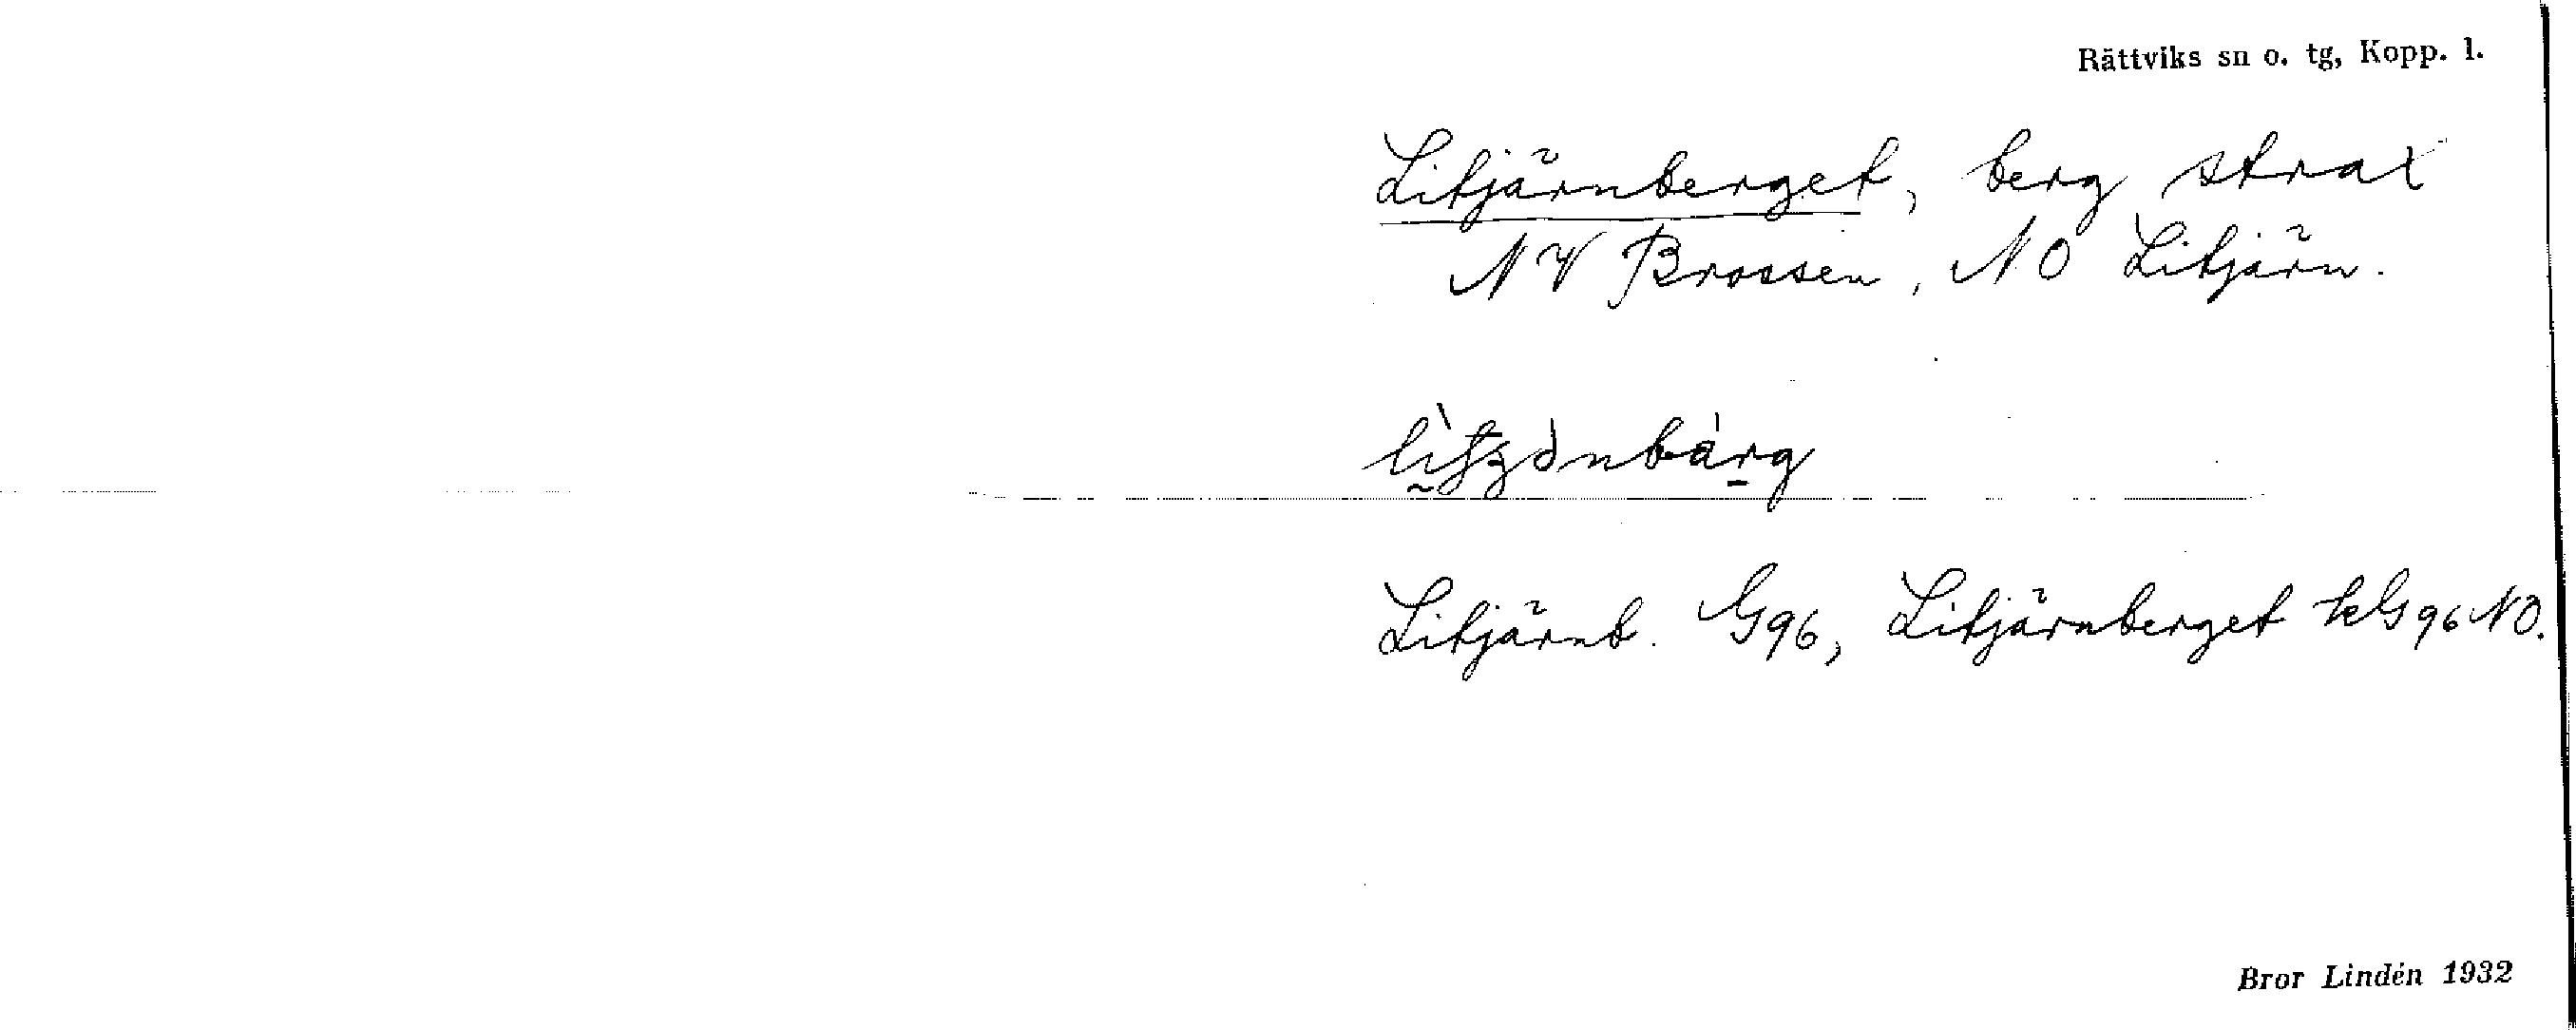 Rättviks sn o. tg, Kopp. l.
Litjärnberget, berg strax
NV Brossen, NO Litjärn.
Litjärnb. G96, Litjärnberget kG96NO.
Bror Lindén 1932